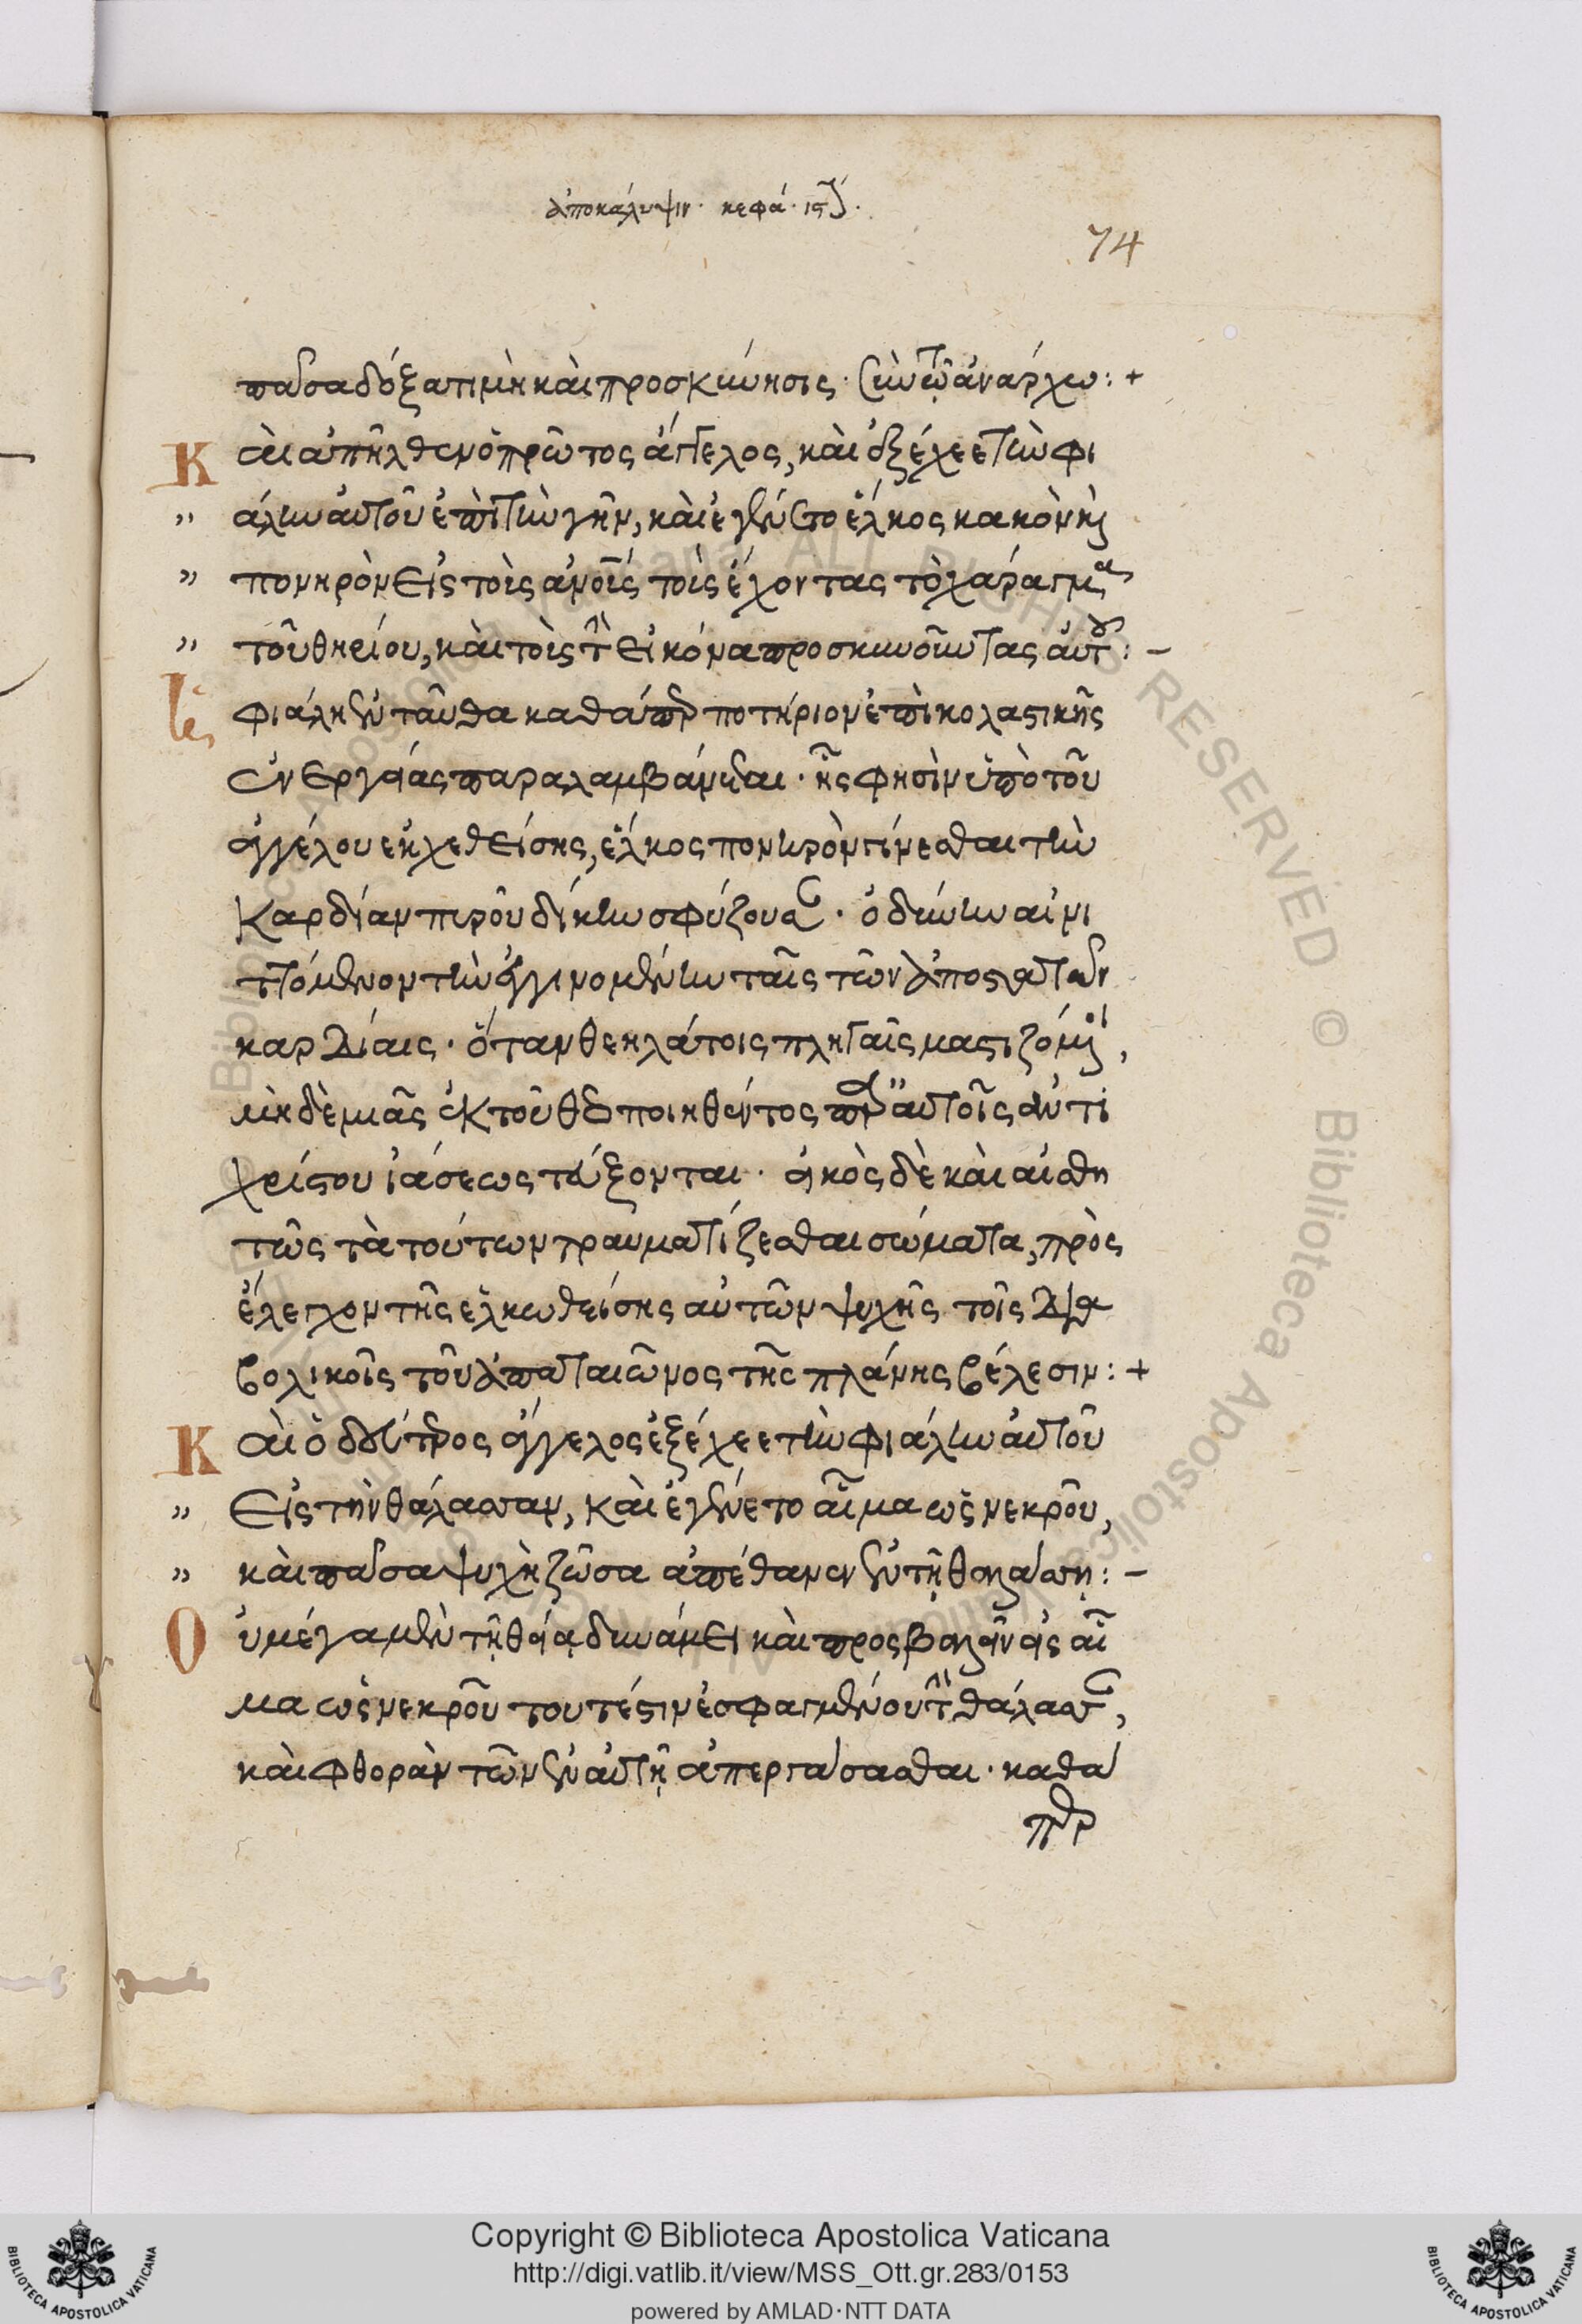 ἀποκάλυψιν. κεφά. ιϛ
74
πᾶσα δόξα τιμὴ καὶ προσκύνησις. σὺν τῷ ἀνάρχω: +
Καὶ ἀπῆλθεν ὁ πρῶτος ἄγγελος, καὶ ἐξέχεε τὴν φι
" άλην αὐτοῦ ἐπὶ τὴν γῆν, καὶ ἐγένετο ἕλκος κακὸν κ
" πονηρὸν εἰς τοὺς ἀνους τοὺς ἔχοντας τὸ χάραγμα
" τοῦ θηρίου, καὶ τοὺς τὴν εἰκόνα προσκυνοῦντας αὐτοῦ: -
φιάλη ἐνταῦθα καθάπερ ποτήριον ἐπὶ κολαστικῆς
ἐνεργείας παραλαμβάνεται. ἧς φησὶν ὑπὸ τοῦ
ἀγγέλου ἐκχεθείσης, ἕλκος πονηρὸν γίνεσθαι τὴν
καρδίαν πυροῦ δίκην σφύζουσαν. ὀδύνην αἰνι
ττόμενον τὴν ἐγγινομένην ταῖς τῶν ἀποστατῶν
καρδίαις. ὅταν θεηλάτοις πληγαῖς μαστιζόμενοι,
μηδὲ μιᾶς ἐκ τοῦ θεοποιηθέντος παρ' αὐτοῖς ἀντι
χρίστου ἰάσεως τεύξονται. εἰκὸς δὲ καὶ αἰσθη
τῶς τὰ τούτων τραυματίζεσθαι σώματα, πρὸς
ἔλεγχον τῆς ἑλκωθείσης αὐτῶν ψυχῆς τοῖς δια
βολικοῖς τοῦ ἀπαταιῶνος τῆς πλάνης βέλεσιν: +
Καὶ ὁ δεύτερος ἄγγελος ἐξέχεε τὴν φιάλην αὐτοῦ
" εἰς τὴν θάλασσαν, καὶ ἐγένετο αἷμα ὡς νεκροῦ,
" καὶ πᾶσα ψυχὴ ζῶσα ἀπέθανεν ἐν τῇ θαλάσσῃ: -
Οὐ μέγα μὲν τῇ θείᾳ δυνάμει καὶ προσβαλεῖν εἰς αἷ
μα ὡς νεκροῦ τουτέστιν ἐσφαγμένου τὴν θάλασσαν,
καὶ φθορὰν τῶν ἐν αὐτῇ ἀπεργάσασθαι. καθά
περ
Copyright © Biblioteca Apostolica Vaticana
http://digi.vatlib.it/view/MSS_Ott.gr.283/0153
powered by AMLAD·NTT DATA